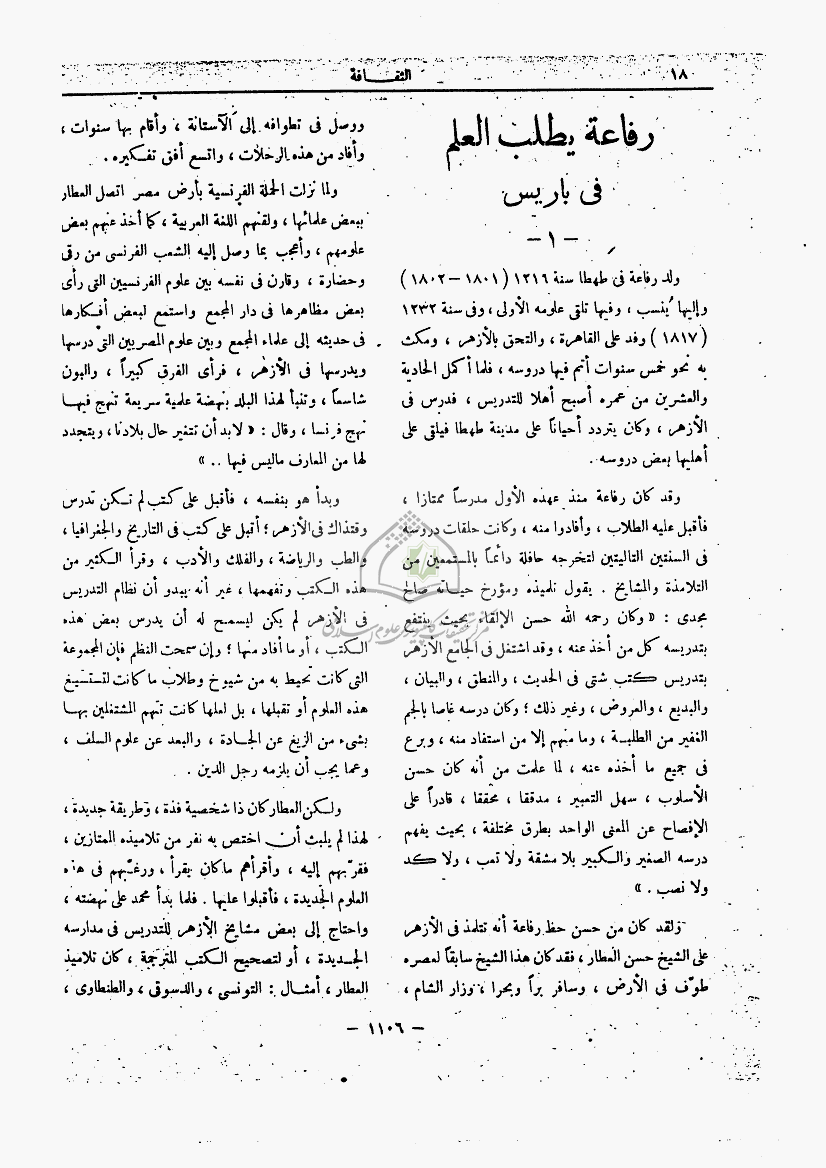 ١٨
الثقافة
رفاعة يطلب العلم
فى باريس
— ١ —
ولد رفاعة فى طهطا سنة ١٢١٦ (١٨٠١ – ١٨٠٢)
وإليها يُنسب ، وفيها تلقى علومه الأولى ، وفى سنة ١٢٣٢
(١٨١٧) وفد على القاهرة ، والتحق بالأزهر ، ومكث
به نحو خمس سنوات أتم فيها دروسه ، فلما أكمل الحادية
والعشرين من عمره أصبح أهلا للتدريس ، فدرس فى
الأزهر ، وكان يتردد أحياناً على مدينة طهطا فيلقى على
أهليها بعض دروسه .
وقد كان رفاعة منذ عهده الأول مدرساً ممتازا ،
فأقبل عليه الطلاب ، وأفادوا منه ، وكانت حلقات دروسه
فى السنتين التاليتين لتخرجه حافلة دائماً بالمستمعين من
التلامذة والمشايخ . يقول تلميذه ومؤرخ حياته صالح
مجدى : « وكان رحمه الله حسن الإلقاء بحيث ينتفع
بتدريسه كل من أخذ عنه ، وقد اشتغل فى الجامع الأزهر
بتدريس كتب شتى فى الحديث ، والمنطق ، والبيان ،
والبديع ، والعروض ، وغير ذلك ؛ وكان درسه غاصا بالجم
الغفير من الطلبة ، وما منهم إلا من استفاد منه ، وبرع
فى جميع ما أخذه عنه ، لما علمت من أنه كان حسن
الأسلوب ، سهل التعبير ، مدققا ، محققا ، قادراً على
الإفصاح عن المعنى الواحد بطرق مختلفة ، بحيث يفهم
درسه الصغير والكبير بلا مشقة ولا تعب ، ولا كد
ولا نصب . »
ولقد كان من حسن حظ رفاعة أنه تتلمذ فى الأزهر
على الشيخ حسن العطار ، فقد كان هذا الشيخ سابقاً لعصره
طوّف فى الأرض ، وسافر براً وبحرا ، وزار الشام ،
ووصل فى تطوافه إلى الآستانة ، وأقام بها سنوات ،
وأفاد من هذه الرحلات ، واتسع أفق تفكيره .
ولما نزلت الحملة الفرنسية بأرض مصر اتصل العطار
ببعض علمائها ، ولقنهم اللغة العربية ، كما أخذ عنهم بعض
علومهم ، وأعجب بما وصل إليه الشعب الفرنسى من رقى
وحضارة ، وقارن فى نفسه بين علوم الفرنسيين التى رأى
بعض مظاهرها فى دار المجمع واستمع لبعض أفكارها
فى حديثه إلى علماء المجمع وبين علوم المصريين التى درسها
ويدرسها فى الأزهر ، فرأى الفرق كبيراً ، والبون
شاسعاً ، وتنبأ لهذا البلد بنهضة علمية سريعة تنهج فيها
نهج فرنسا ، وقال : « لابد أن تتغير حال بلادنا ، ويتجدد
لها من المعارف ماليس فيها .. »
وبدأ هو بنفسه ، فأقبل على كتب لم تكن تدرس
وقتذاك فى الأزهر ؛ أقبل على كتب فى التاريخ والجغرافيا ،
والطب والرياضة ، والفلك والأدب ، وقرأ الكثير من
هذه الكتب وتفهمها ، غير أنه يبدو أن نظام التدريس
فى الأزهر لم يكن ليسمح له أن يدرس بعض هذه
الكتب ، أو ما أفاد منها ؛ وإن سمحت النظم فإن المجموعة
التى كانت تحيط به من شيوخ وطلاب ما كانت لتستسيغ
هذه العلوم أو تقبلها ، بل لعلها كانت تتهم المشتغلين بها
بشىء من الزيغ عن الجادة ، والبعد عن علوم السلف ،
وعما يجب أن يلزمه رجل الدين .
ولكن العطار كان ذا شخصية فذة ، وطريقة جديدة ،
لهذا لم يلبث أن اختص به نفر من تلاميذه الممتازين ،
فقرّبهم إليه ، وأقرأهم ماكان يقرأ ، ورغّبهم فى هذه
العلوم الجديدة ، فأقبلوا عليها . فلما بدأ محمد على نهضته ،
واحتاج إلى بعض مشايخ الأزهر للتدريس فى مدارسه
الجديدة ، أو لتصحيح الكتب المترجمة ، كان تلاميذ
العطار ، أمثال : التونسى ، والدسوقى ، والطنطاوى ،
— ١١٠٦ —
مرکز تحقیقات کامپیوتری علوم اسلامی